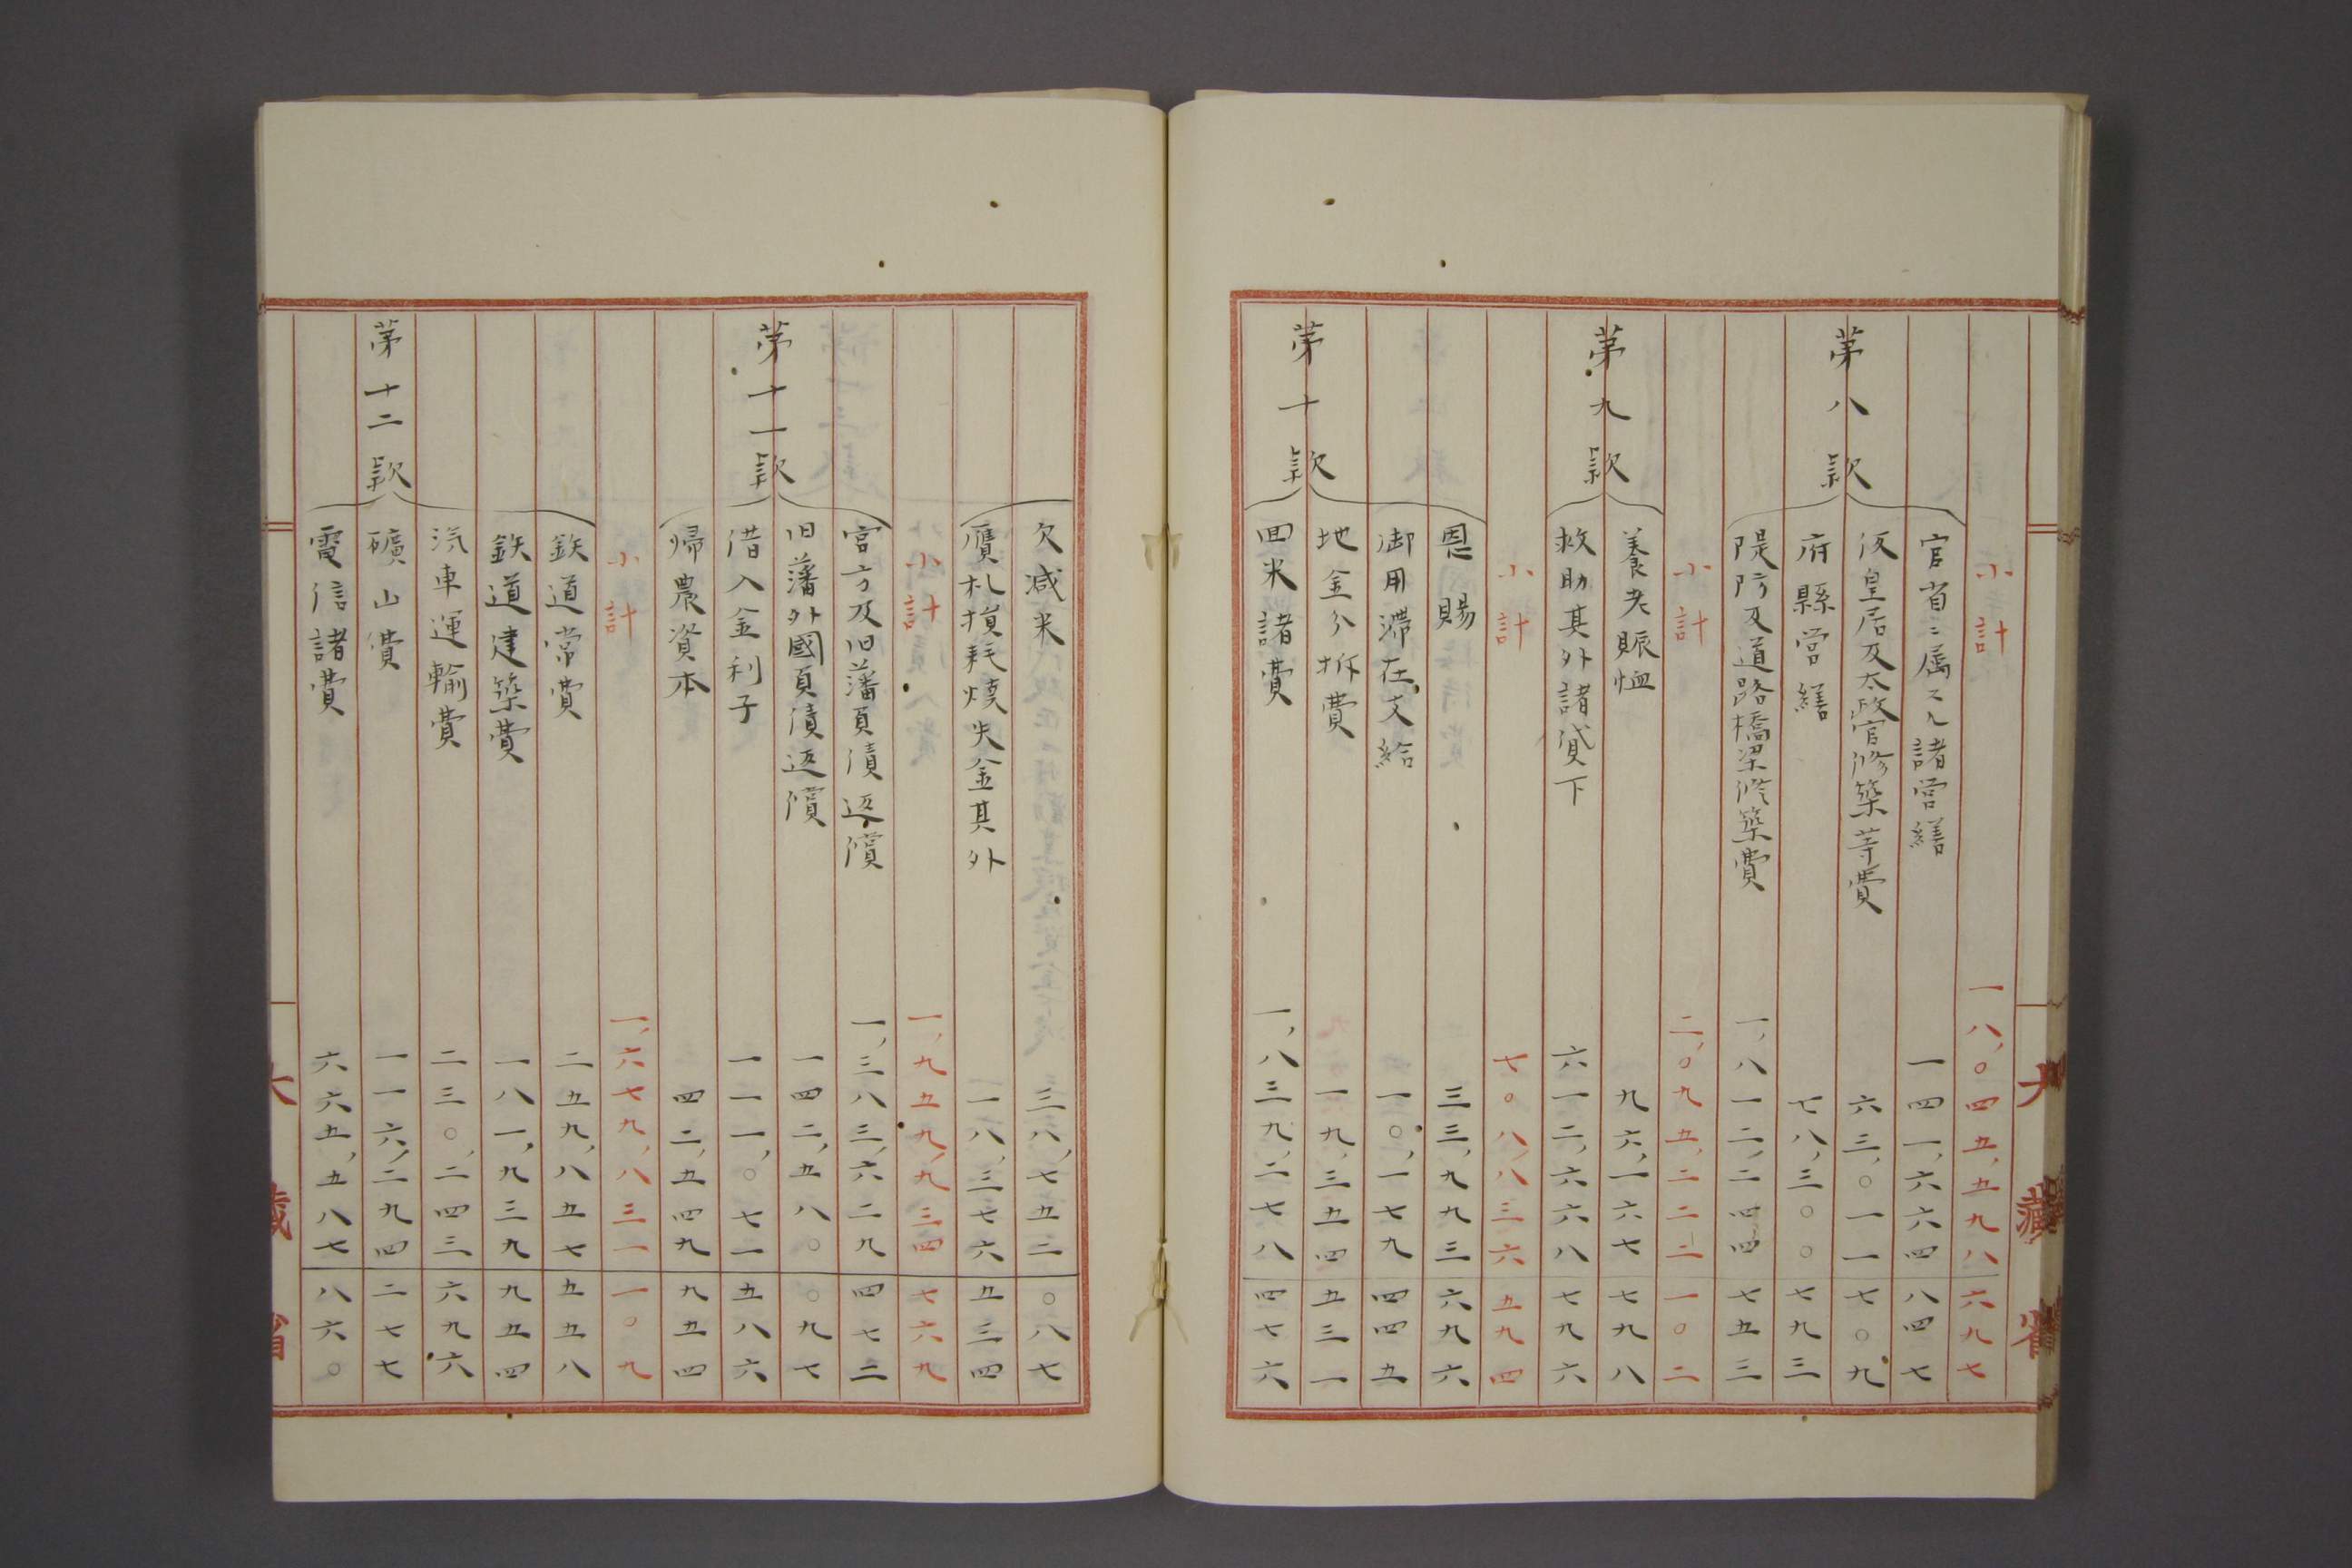 大藏省
小計 一八,〇四五,五九八 六九七
第八款
官省ニ属スル諸営繕 一四一,六六四 八四七
仮皇居及太政官修築等費 六三,〇一一 七〇九
府縣営繕 七八,三〇〇 七九三
堤防及道路橋梁修築費 一,八一二,二四四 七五三
小計 二,〇九五,二二二 一〇二
第九款
養老賑恤 九六,一六七 七九八
救助其外諸貸下 六一二,六六八 七九六
小計 七〇八,八三六 五九四
第十款
恩賜 三三,九九三 六九六
御用滞在支給 一〇,一七九 四四五
地金分拆費 一九,三五四 五三一
囬米諸費 一,八三九,二七八 四七六
欠減米 三八,七五二 〇八七
贋札損耗燒失金其外 一八,三七六 五三四
小計 一,九五九,九三四 七六九
第十一款
宮方及旧藩負債返償 一,三八三,六二九 四七二
旧藩外國負債返償 一四二,五八〇 〇九七
借入金利子 一一一,〇七一 五八六
帰農資本 四二,五四九 九五四
小計 一,六七九,八三一 一〇九
第十二款
鉄道常費 二五九,八五七 五五八
鉄道建築費 一八一,九三九 九五四
汽車運輸費 二三〇,二四三 六九六
礦山費 一一六,二九四 二七七
電信諸費 六六五,五八七 八六〇
大藏省